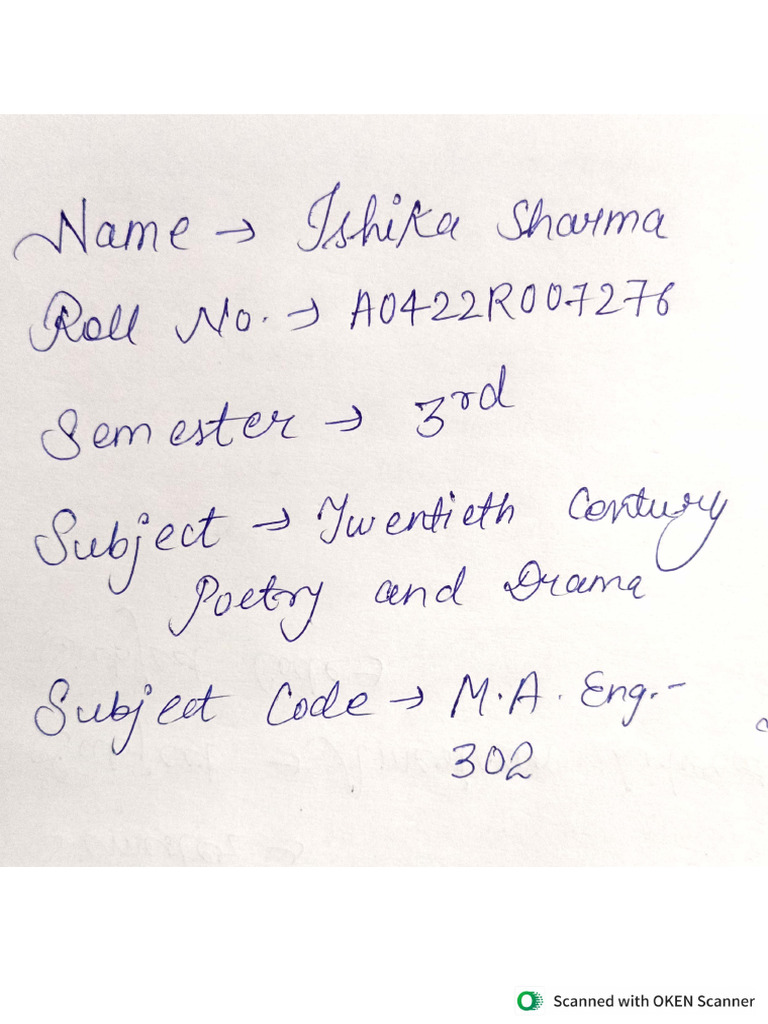 Name → Ishika Sharma
Roll No. → A0422R007276
Semester → 3rd
Subject → Twentieth Century
Poetry and Drama
Subject Code → M.A. Eng.-
302
Scanned with OKEN Scanner